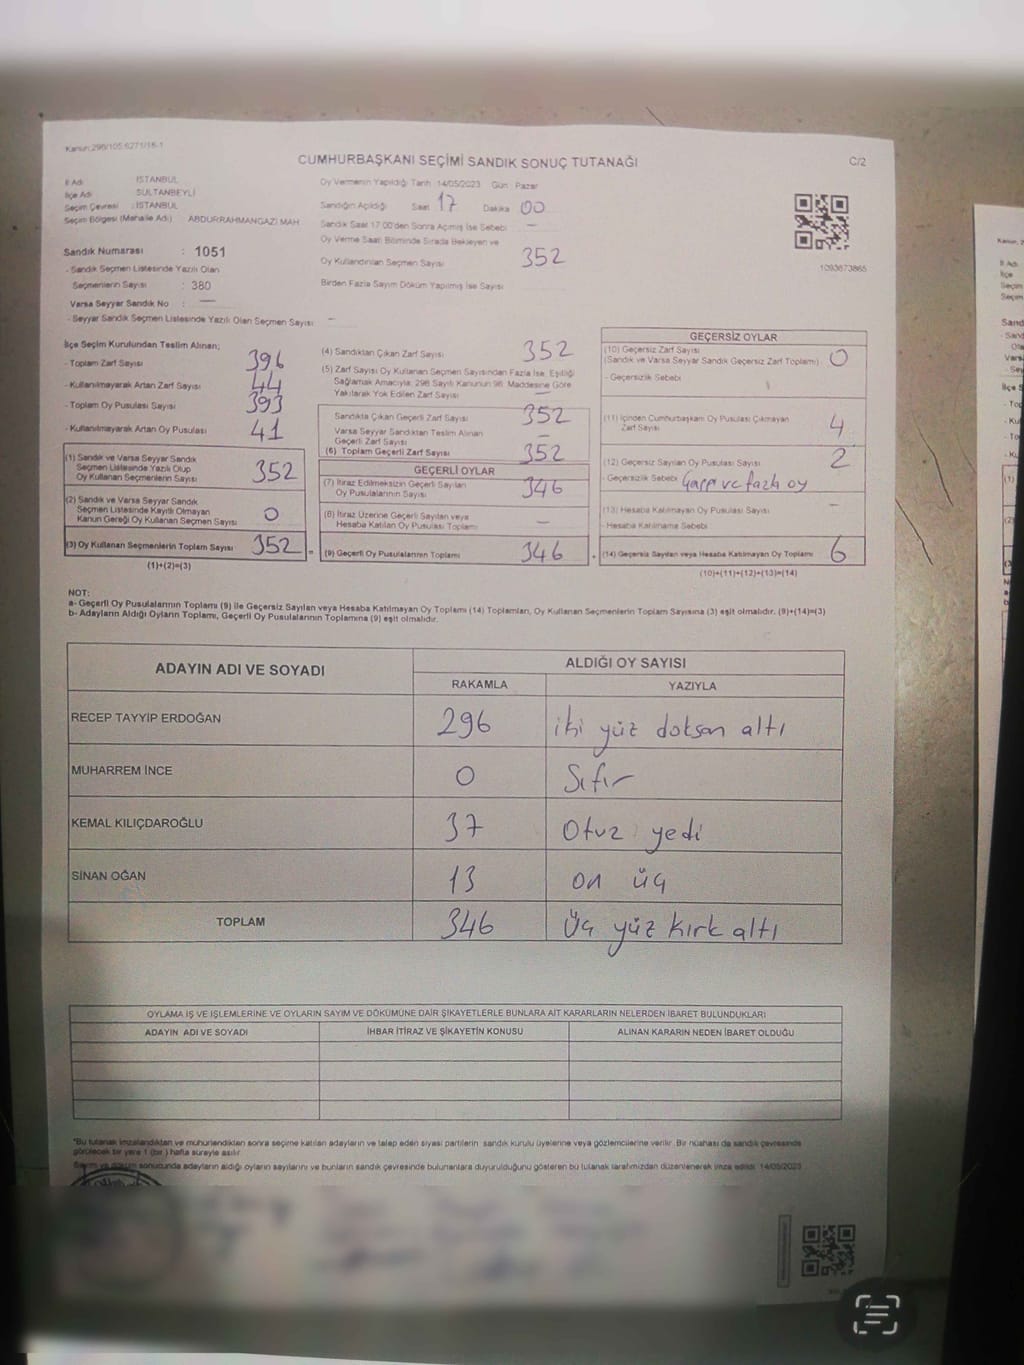 Kanun:298/105.6271/16-1
CUMHURBAŞKANI SEÇİMİ SANDIK SONUÇ TUTANAĞI
C/2
İl Adı : İSTANBUL
İlçe Adı : SULTANBEYLİ
Seçim Çevresi : İSTANBUL
Seçim Bölgesi (Mahalle Adı) ABDURRAHMANGAZİ MAH.
Sandık Numarası : 1051
- Sandık Seçmen Listesinde Yazılı Olan
Seçmenlerin Sayısı : 380
Varsa Seyyar Sandık No : —
- Seyyar Sandık Seçmen Listesinde Yazılı Olan Seçmen Sayısı : —
Oy Vermenin Yapıldığı Tarih 14/05/2023 Gün Pazar
Sandığın Açıldığı Saat 17 Dakika 00
Sandık Saat 17:00'den Sonra Açımış İse Sebebi —
Oy Verme Saati Bitiminde Sırada Bekleyen ve
Oy Kullandırılan Seçmen Sayısı 352
Birden Fazla Sayım Döküm Yapılmış İse Sayısı
1093673865
İlçe Seçim Kurulundan Teslim Alınan;
- Toplam Zarf Sayısı 396
- Kullanılmayarak Artan Zarf Sayısı 44
- Toplam Oy Pusulası Sayısı 393
- Kullanılmayarak Artan Oy Pusulası 41
(1) Sandık ve Varsa Seyyar Sandık
Seçmen Listesinde Yazılı Olup
Oy Kullanan Seçmenlerin Sayısı 352
(2) Sandık ve Varsa Seyyar Sandık
Seçmen Listesinde Kayıtlı Olmayan
Kanun Gereği Oy Kullanan Seçmen Sayısı 0
(3) Oy Kullanan Seçmenlerin Toplam Sayısı 352 =
(1)+(2)=(3)
(4) Sandıktan Çıkan Zarf Sayısı 352
(5) Zarf Sayısı Oy Kullanan Seçmen Sayısından Fazla İse, Eşitliği
Sağlamak Amacıyla, 298 Sayılı Kanunun 98. Maddesine Göre
Yakılarak Yok Edilen Zarf Sayısı —
Sandıkta Çıkan Geçerli Zarf Sayısı 352
Varsa Seyyar Sandıktan Teslim Alınan
Geçerli Zarf Sayısı —
(6) Toplam Geçerli Zarf Sayısı 352
GEÇERLİ OYLAR
(7) İtiraz Edilmeksizin Geçerli Sayılan
Oy Pusulalarının Sayısı 346
(8) İtiraz Üzerine Geçerli Sayılan veya
Hesaba Katılan Oy Pusulası Toplamı —
(9) Geçerli Oy Pusulalarının Toplamı 346 +
GEÇERSİZ OYLAR
(10) Geçersiz Zarf Sayısı
(Sandık ve Varsa Seyyar Sandık Geçersiz Zarf Toplamı) 0
- Geçersizlik Sebebi
(11) İçinden Cumhurbaşkanı Oy Pusulası Çıkmayan
Zarf Sayısı 4
(12) Geçersiz Sayılan Oy Pusulası Sayısı 2
- Geçersizlik Sebebi ve fazla oy
(13) Hesaba Katılmayan Oy Pusulası Sayısı —
- Hesaba Katılmama Sebebi
(14) Geçersiz Sayılan veya Hesaba Katılmayan Oy Toplamı 6
(10)+(11)+(12)+(13)=(14)
NOT:
a- Geçerli Oy Pusulalarının Toplamı (9) ile Geçersiz Sayılan veya Hesaba Katılmayan Oy Toplamı (14) Toplamları, Oy Kullanan Seçmenlerin Toplam Sayısına (3) eşit olmalıdır. (9)+(14)=(3)
b- Adayların Aldığı Oyların Toplamı, Geçerli Oy Pusulalarının Toplamına (9) eşit olmalıdır.
ADAYIN ADI VE SOYADI
ALDIĞI OY SAYISI
RAKAMLA YAZIYLA
RECEP TAYYİP ERDOĞAN 296 iki yüz doksan altı
MUHARREM İNCE 0 Sıfır
KEMAL KILIÇDAROĞLU 37 Otuz yedi
SİNAN OĞAN 13 on üç
TOPLAM 346 Üç yüz kırk altı
OYLAMA İŞ VE İŞLEMLERİNE VE OYLARIN SAYIM VE DÖKÜMÜNE DAİR ŞİKAYETLERLE BUNLARA AİT KARARLARIN NELERDEN İBARET BULUNDUKLARI
ADAYIN ADI VE SOYADI İHBAR İTİRAZ VE ŞİKAYETİN KONUSU ALINAN KARARIN NEDEN İBARET OLDUĞU
*Bu tutanak imzalandıktan ve mühürlendikten sonra seçime katılan adayların ve talep eden siyasi partilerin sandık kurulu üyelerine veya gözlemcilerine verilir. Bir nüshası da sandık çevresinde
görülecek bir yere 1 (bir) hafta süreyle asılır.
Sayım ve döküm sonucunda adayların aldığı oyların sayılarını ve bunların sandık çevresinde bulunanlara duyurulduğunu gösteren bu tutanak tarafımızdan düzenlenerek imza edildi. 14/05/2023